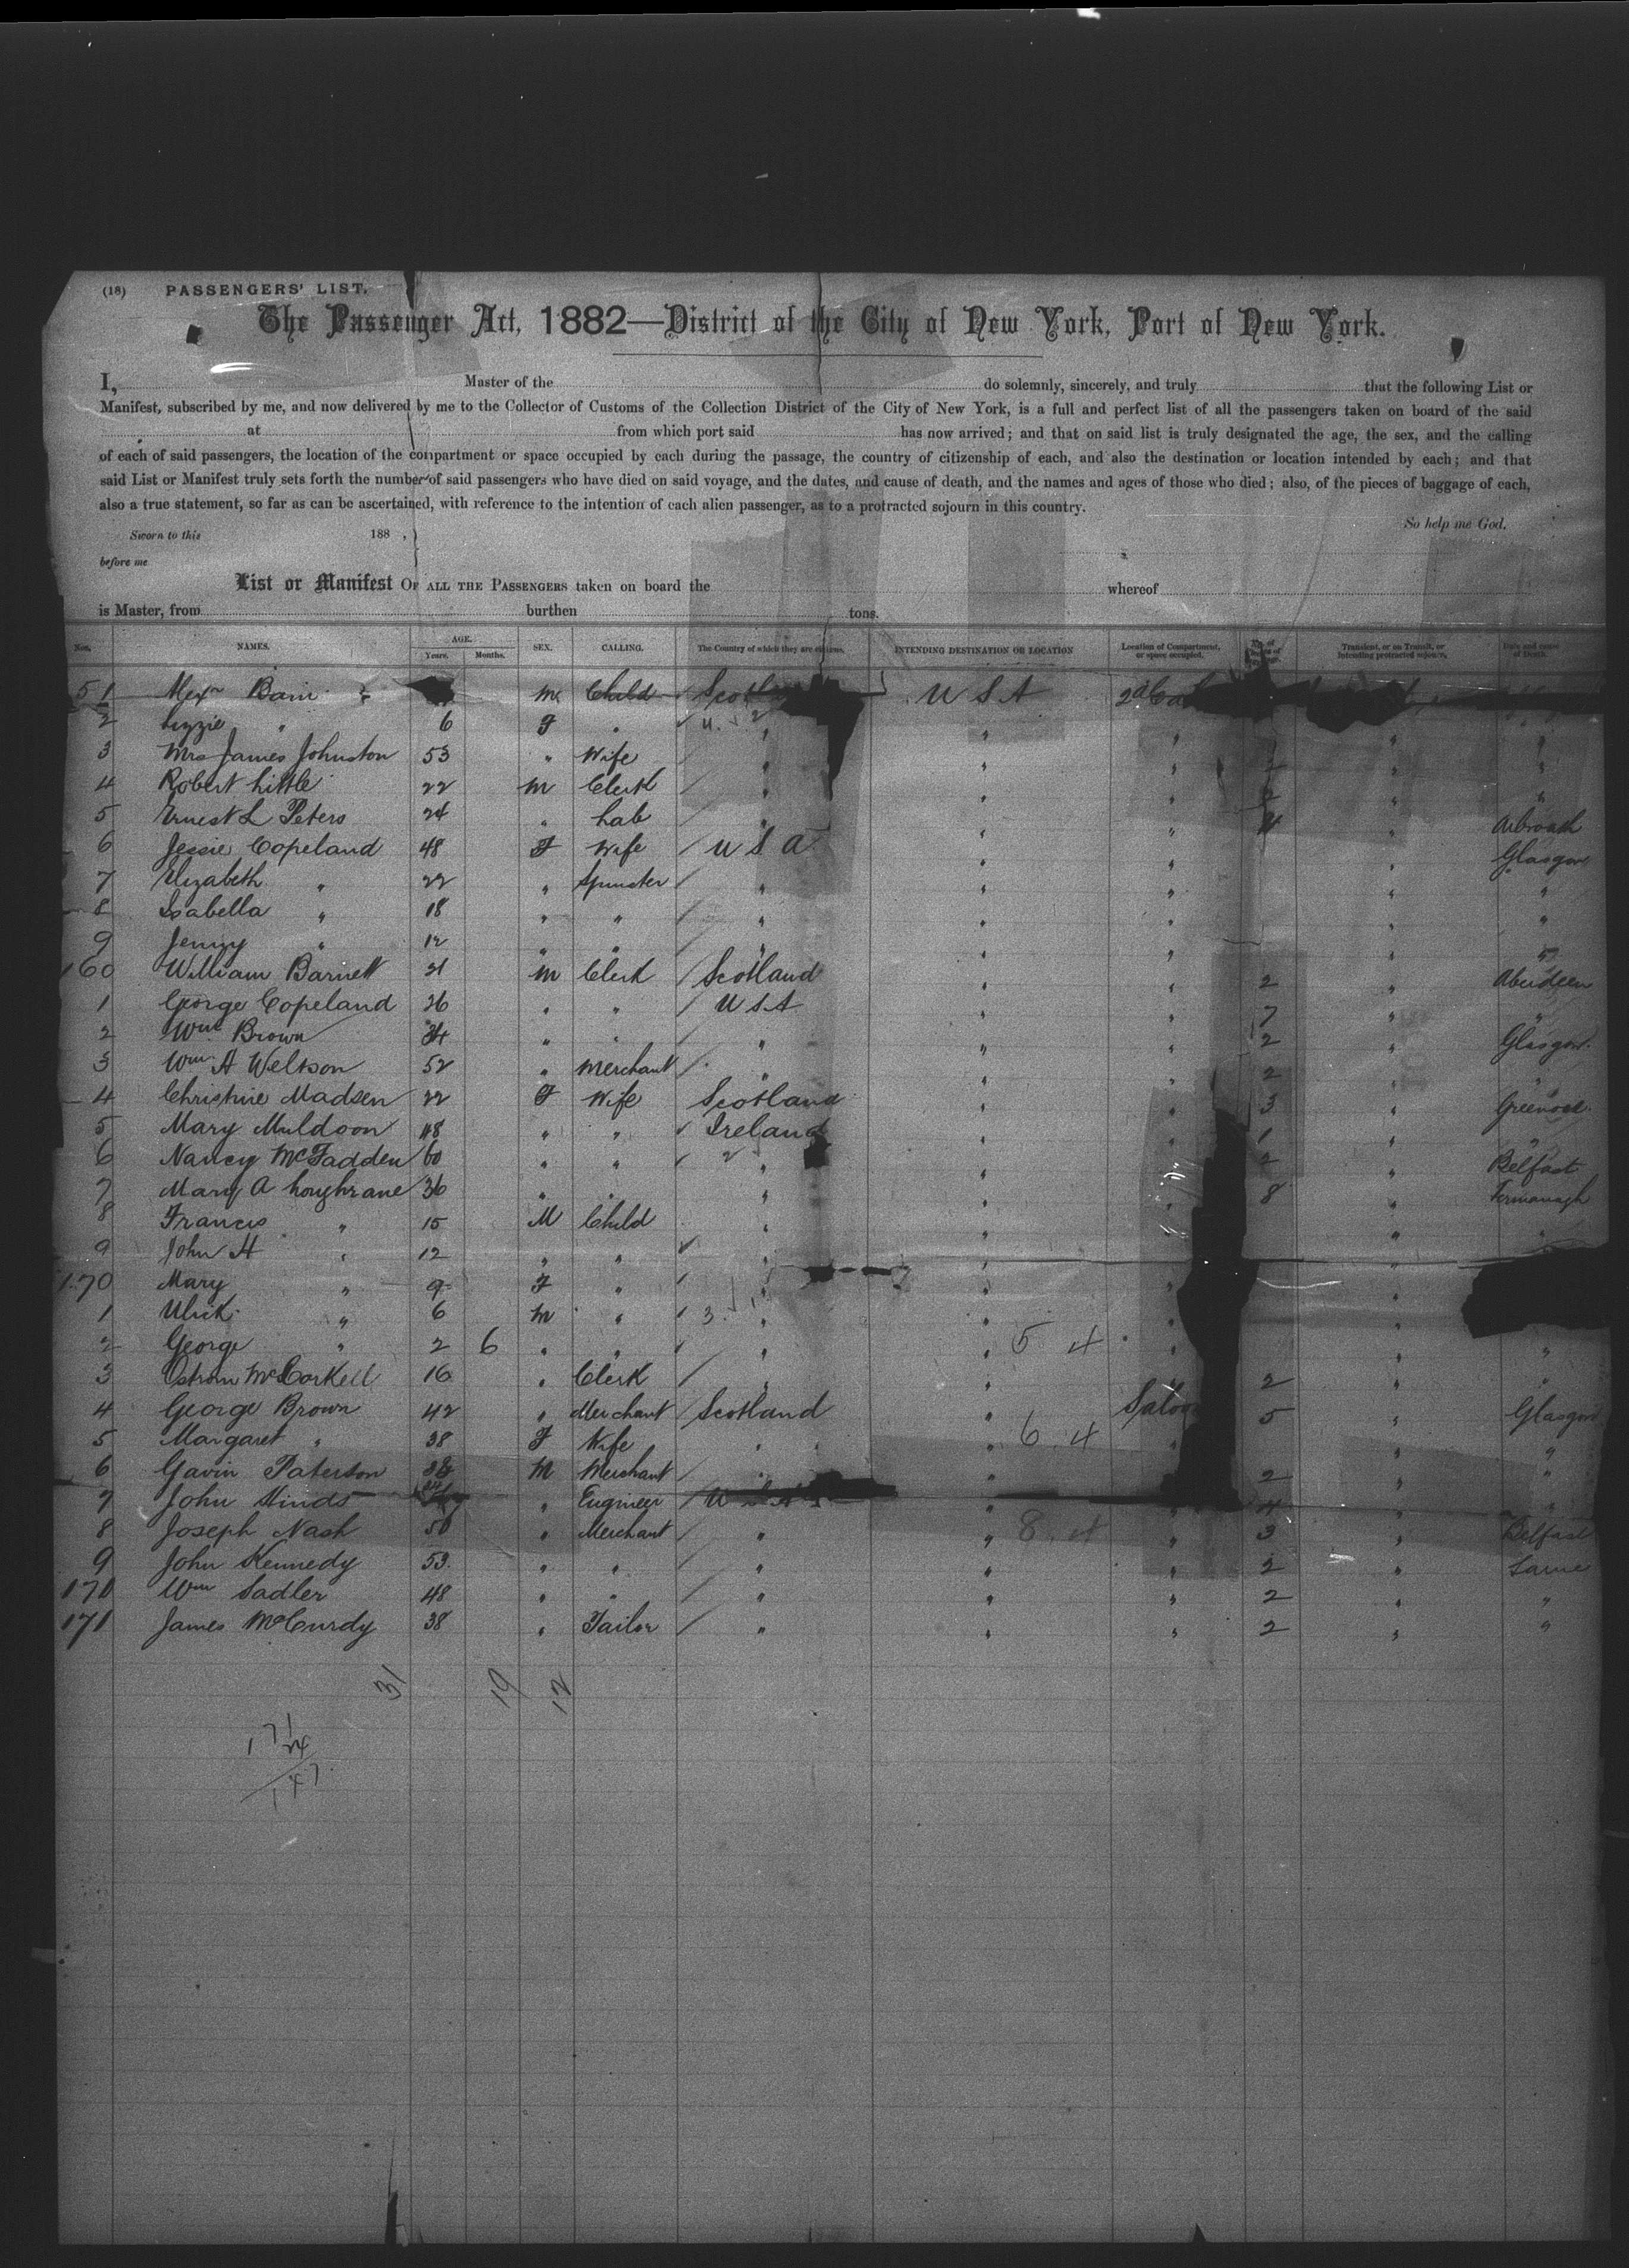 (18) PASSENGERS' LIST.
The Passenger Act, 1882—District of the City of New York, Port of New York.
I, Master of the do solemnly, sincerely, and truly that the following List or
Manifest, subscribed by me, and now delivered by me to the Collector of Customs of the Collection District of the City of New York, is a full and perfect list of all the passengers taken on board of the said
at from which port said has now arrived; and that on said list is truly designated the age, the sex, and the calling
of each of said passengers, the location of the compartment or space occupied by each during the passage, the country of citizenship of each, and also the destination or location intended by each; and that
said List or Manifest truly sets forth the number of said passengers who have died on said voyage, and the dates, and cause of death, and the names and ages of those who died; also, of the pieces of baggage of each,
also a true statement, so far as can be ascertained, with reference to the intention of each alien passenger, as to a protracted sojourn in this country.
So help me God.
Sworn to this 188 ,
before me
List or Manifest OF ALL THE PASSENGERS taken on board the whereof
is Master, from burthen tons.
Nos. NAMES. AGE. Years. Months. SEX. CALLING. The Country of which they are citizens. INTENDING DESTINATION OR LOCATION Location of Compartment, or space occupied. Transient, or on Transit, or intending protracted sojourn. Date and cause of Death.
51 Alexr Bain M Child U S A
2 Lizzie " 6 F " " " " " "
3 Mrs James Johnston 53 " Wife " " " " "
4 Robert Little 22 M Clerk " " " 2 " "
5 Ernest L Peters 24 " Lab " " " " Arbroath
6 Jessie Copeland 48 F Wife U S A " " " Glasgow
7 Elizabeth " 22 " Spinster " " " " "
8 Isabella " 18 " " " " " " "
9 Jenny " 12 " " " " " " "
160 William Barnett 21 M Clerk Scotland " " 2 " Aberdeen
1 George Copeland 26 " " U S A " " 7 " "
2 Wm Brown 34 " " " " " 2 " Glasgow
3 Wm A Weltson 52 " Merchant " " " 2 " "
4 Christine Madsen 22 F Wife Scotland " " 3 " Greenock
5 Mary Muldoon 48 " " Ireland " " 1 " "
6 Nancy McFadden 60 " " " " " 2 " Belfast
7 Mary A Loughrane 36 " " " " " 8 " Fermanagh
8 Francis " 15 M Child " " " " "
9 John H " 12 " " " " " "
170 Mary " 9 F " " " " "
1 Ulick " 6 M " 3 " " "
2 George " 2 6 " " " " 5 4 " " "
3 McCorkell 16 " Clerk " " " 2 " "
4 George Brown 42 " Merchant Scotland " Saloon 5 " Glasgow
5 Margaret " 38 F Wife " " 6 4 " " "
6 Gavin Paterson 38 M Merchant " " " 2 " "
7 John Hinds " Engineer U S A " " 4 " "
8 Joseph Nash 50 " Merchant " " 8 4 " 3 " Belfast
9 John Kennedy 53 " " " " " 2 " Larne
170 Wm Sadler 48 " " " " " 2 " "
171 James McCurdy 38 " Tailor " " " 2 " "
31 19 12
171
24
147